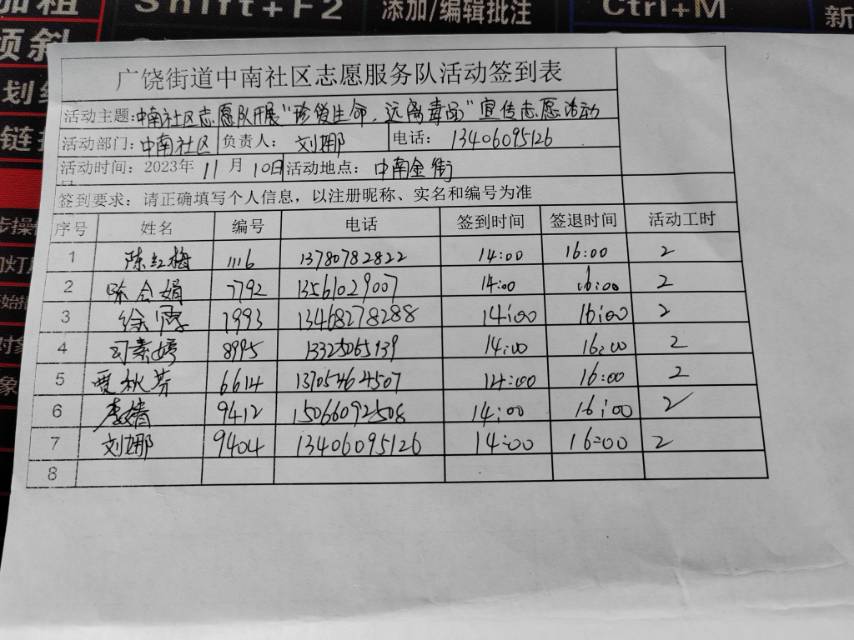 Shift+F2
添加/编辑批注
Ctrl+M
新
倾斜
广饶街道中南社区志愿服务队活动签到表
活动主题:中南社区志愿队开展"珍爱生命,远离毒品"宣传志愿活动
活动部门:中南社区 负责人: 刘娜 电话: 13406095126
活动时间:2023年11月10日 活动地点: 中南金街
签到要求:请正确填写个人信息,以注册昵称、实名和编号为准
序号 姓名 编号 电话 签到时间 签退时间 活动工时
1 陈红梅 1116 13780782822 14:00 16:00 2
2 陈会娟 7792 13561029007 14:00 16:00 2
3 徐 7993 13468278288 14:00 16:00 2
4 司素婷 8995 13325065139 14:00 16:00 2
5 贾秋芳 6614 13705464507 14:00 16:00 2
6 李婧 9412 15066092508 14:00 16:00 2
7 刘娜 9404 13406095126 14:00 16:00 2
8